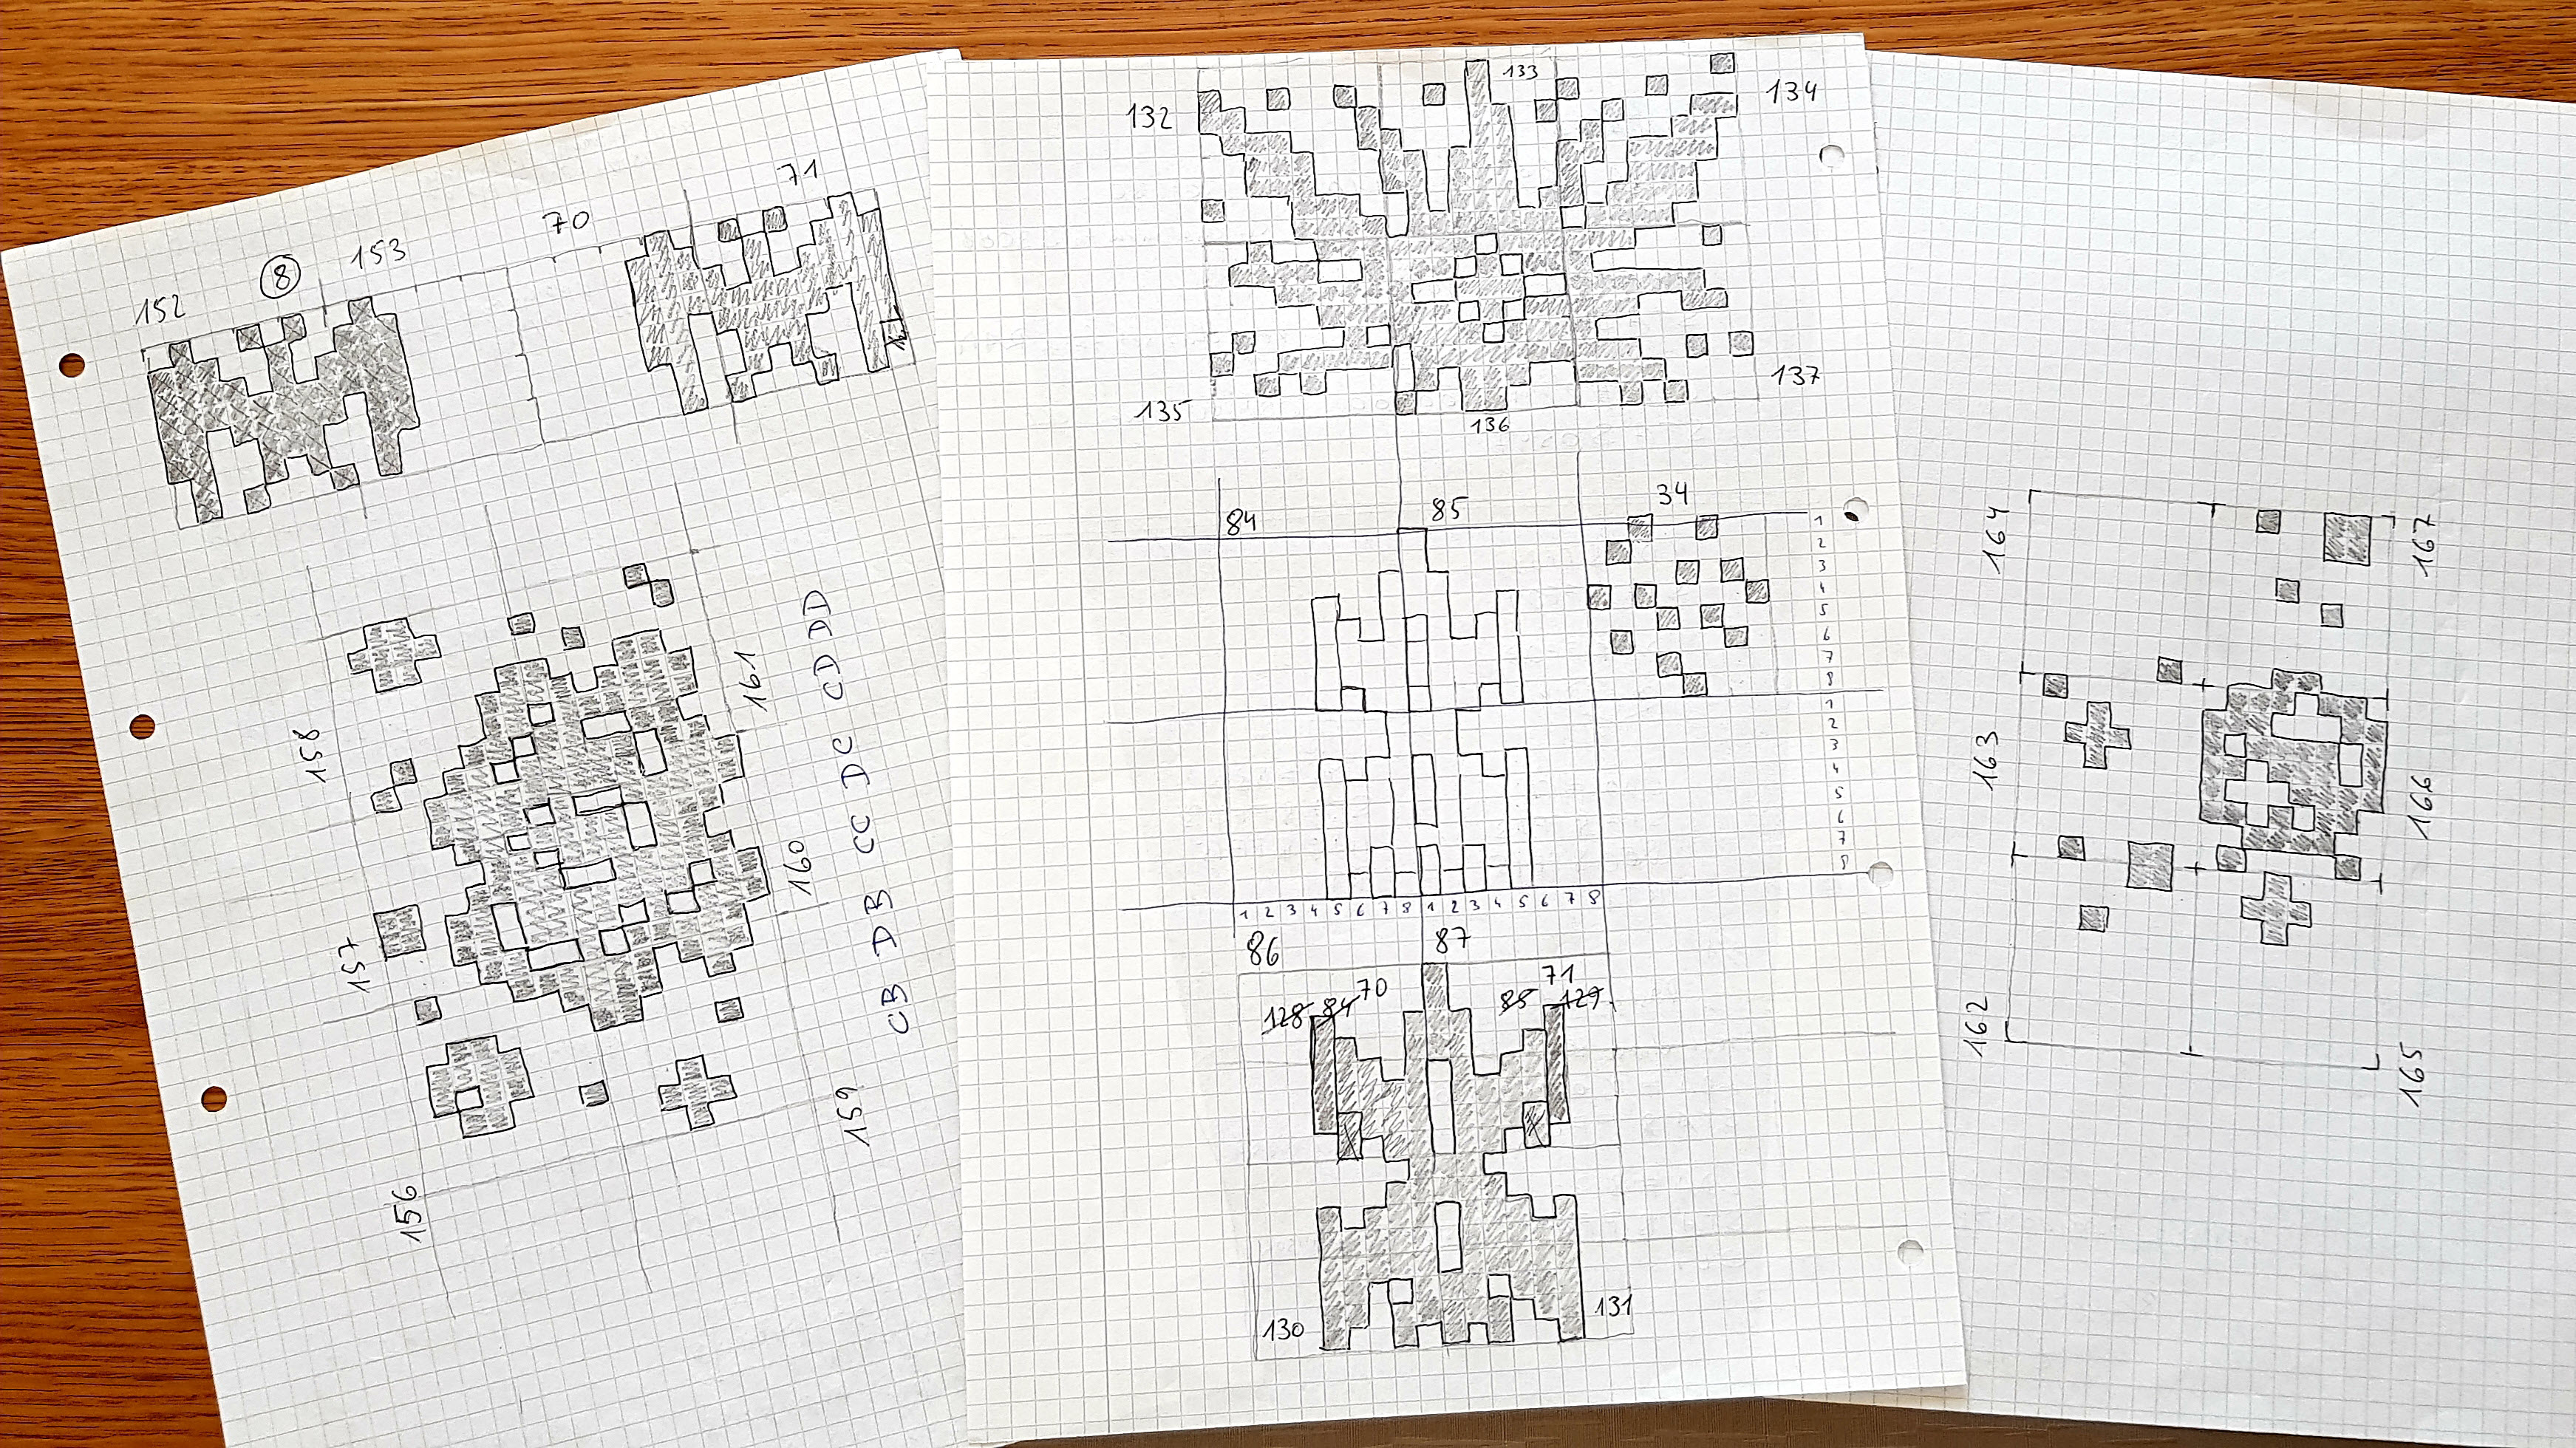 152
⑧
153
70
71
158
157
156
161
160
159
CB DB CC DC CD DD
132
133
134
135
136
137
84
85
34
1
2
3
4
5
6
7
8
1
2
3
4
5
6
7
8
1 2 3 4 5 6 7 8 1 2 3 4 5 6 7 8
86
87
128 84 70
85 129
71
130
131
164
167
163
166
162
165